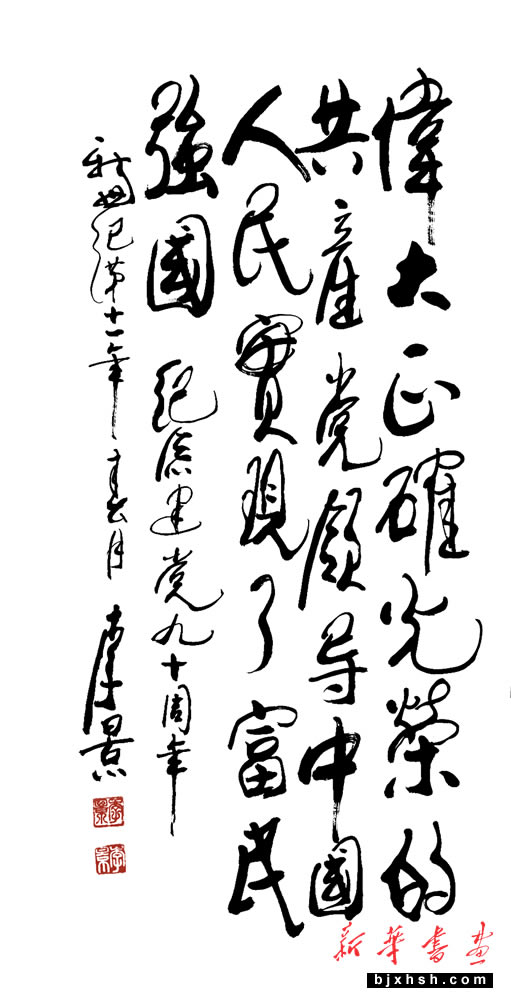 偉大正確光榮的
共产党領导中國
人民實現了富民
強國 纪念建党九十周年
新世纪第十一年春月 李景
新華書畫
bjxhsh.com